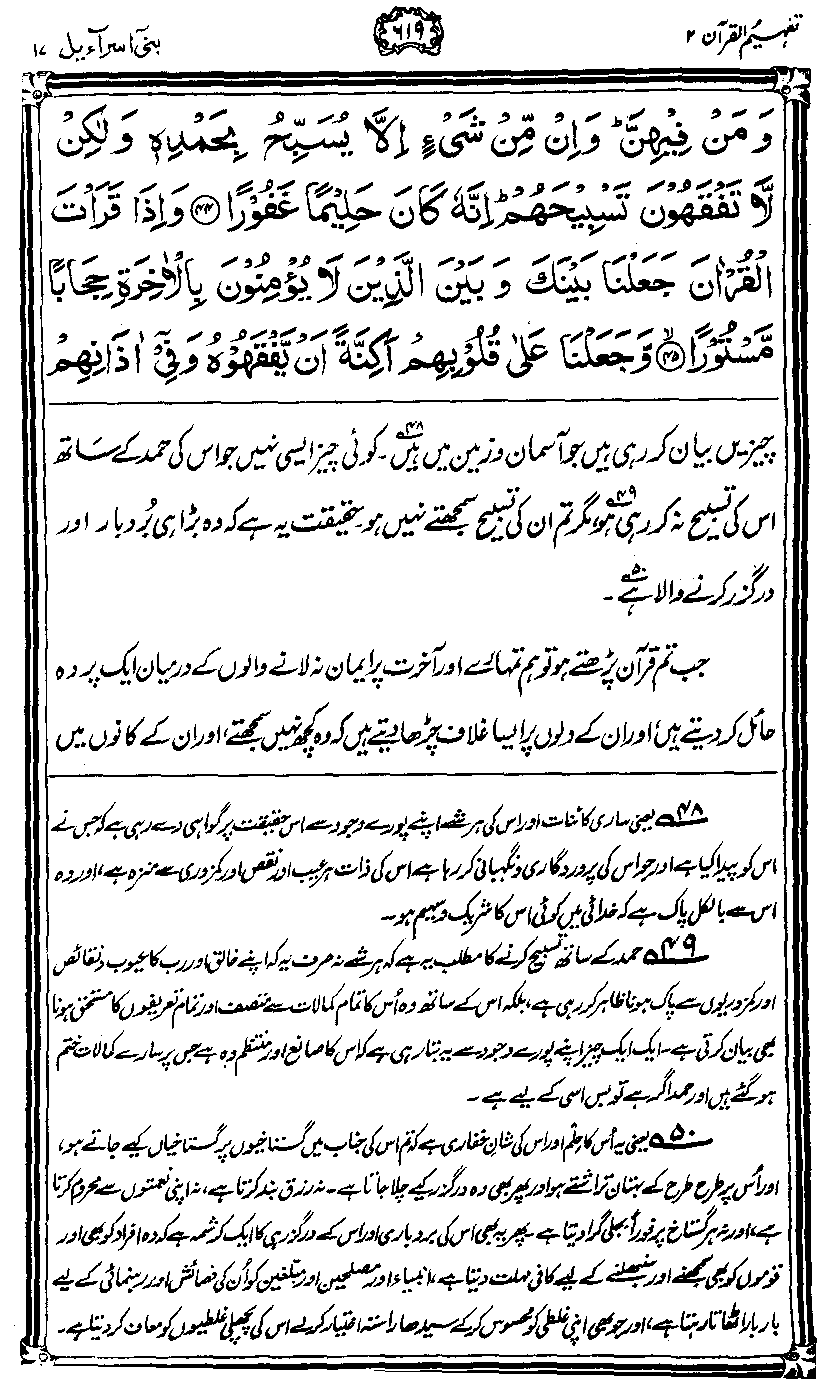 تفہیم القرآن ۲
۶۱۹
بنی اسرآءیل ۱۷
وَ مَنْ فِیْهِنَّ ؕ وَ اِنْ مِّنْ شَیْءٍ اِلَّا یُسَبِّحُ بِحَمْدِهٖ وَ لٰكِنْ
لَّا تَفْقَهُوْنَ تَسْبِیْحَهُمْ ؕ اِنَّهٗ كَانَ حَلِیْمًا غَفُوْرًا ۝۴۴ وَ اِذَا قَرَاْتَ
الْقُرْاٰنَ جَعَلْنَا بَیْنَكَ وَ بَیْنَ الَّذِیْنَ لَا یُؤْمِنُوْنَ بِالْاٰخِرَةِ حِجَابًا
مَّسْتُوْرًا ۝۴۵ۙ وَّ جَعَلْنَا عَلٰی قُلُوْبِهِمْ اَكِنَّةً اَنْ یَّفْقَهُوْهُ وَ فِیْۤ اٰذَانِهِمْ
چیزیں بیان کر رہی ہیں جو آسمان و زمین میں ہیں۔۴۸ کوئی چیز ایسی نہیں جو اس کی حمد کے ساتھ
اس کی تسبیح نہ کر رہی ہو،۴۹ مگر تم ان کی تسبیح سمجھتے نہیں ہو۔ حقیقت یہ ہے کہ وہ بڑا ہی بُردبار اور
درگزر کرنے والا ہے۔۵۰
جب تم قرآن پڑھتے ہو تو ہم تمہارے اور آخرت پر ایمان نہ لانے والوں کے درمیان ایک پردہ
حائل کر دیتے ہیں، اور ان کے دلوں پر ایسا غلاف چڑھا دیتے ہیں کہ وہ کچھ نہیں سمجھتے، اور ان کے کانوں میں
۴۸ یعنی ساری کائنات اور اس کی ہر شے اپنے پورے وجود سے اس حقیقت پر گواہی دے رہی ہے کہ جس نے
اس کو پیدا کیا ہے اور جو اس کی پروردگاری و نگہبانی کر رہا ہے اس کی ذات ہر عیب اور نقص اور کمزوری سے منزہ ہے، اور وہ
اس سے بالکل پاک ہے کہ خدائی میں کوئی اس کا شریک و سہیم ہو۔
۴۹ حمد کے ساتھ تسبیح کرنے کا مطلب یہ ہے کہ ہر شے نہ صرف یہ کہ اپنے خالق اور رب کا عیوب و نقائص
اور کمزوریوں سے پاک ہونا ظاہر کر رہی ہے، بلکہ اس کے ساتھ وہ اُس کا تمام کمالات سے متصف اور تمام تعریفوں کا مستحق ہونا
بھی بیان کرتی ہے۔ ایک ایک چیز اپنے پورے وجود سے یہ بتا رہی ہے کہ اس کا صانع اور منتظم وہ ہے جس پر سارے کمالات ختم
ہو گئے ہیں اور حمد اگر ہے تو بس اسی کے لیے ہے۔
۵۰ یعنی یہ اُس کا حِلم اور اس کی شانِ غفاری ہے کہ تم اس کی جناب میں گستاخیوں پر گستاخیاں کیے جاتے ہو،
اور اُس پر طرح طرح کے بہتان تراشتے ہو اور پھر بھی وہ درگزر کیے چلا جاتا ہے۔ نہ رزق بند کرتا ہے، نہ اپنی نعمتوں سے محروم کرتا
ہے، اور نہ ہر گستاخ پر فوراً بجلی گرا دیتا ہے۔ پھر یہ بھی اس کی بردباری اور اس کے درگزر ہی کا ایک کرشمہ ہے کہ وہ افراد کو بھی اور
قوموں کو بھی سمجھنے اور سنبھلنے کے لیے کافی مہلت دیتا ہے، انبیاء اور مصلحین اور مبلغین کو اُن کی فہمائش اور رہنمائی کے لیے
بار بار اٹھاتا رہتا ہے، اور جو بھی اپنی غلطی کو محسوس کر کے سیدھا راستہ اختیار کر لے اس کی پچھلی غلطیوں کو معاف کر دیتا ہے۔